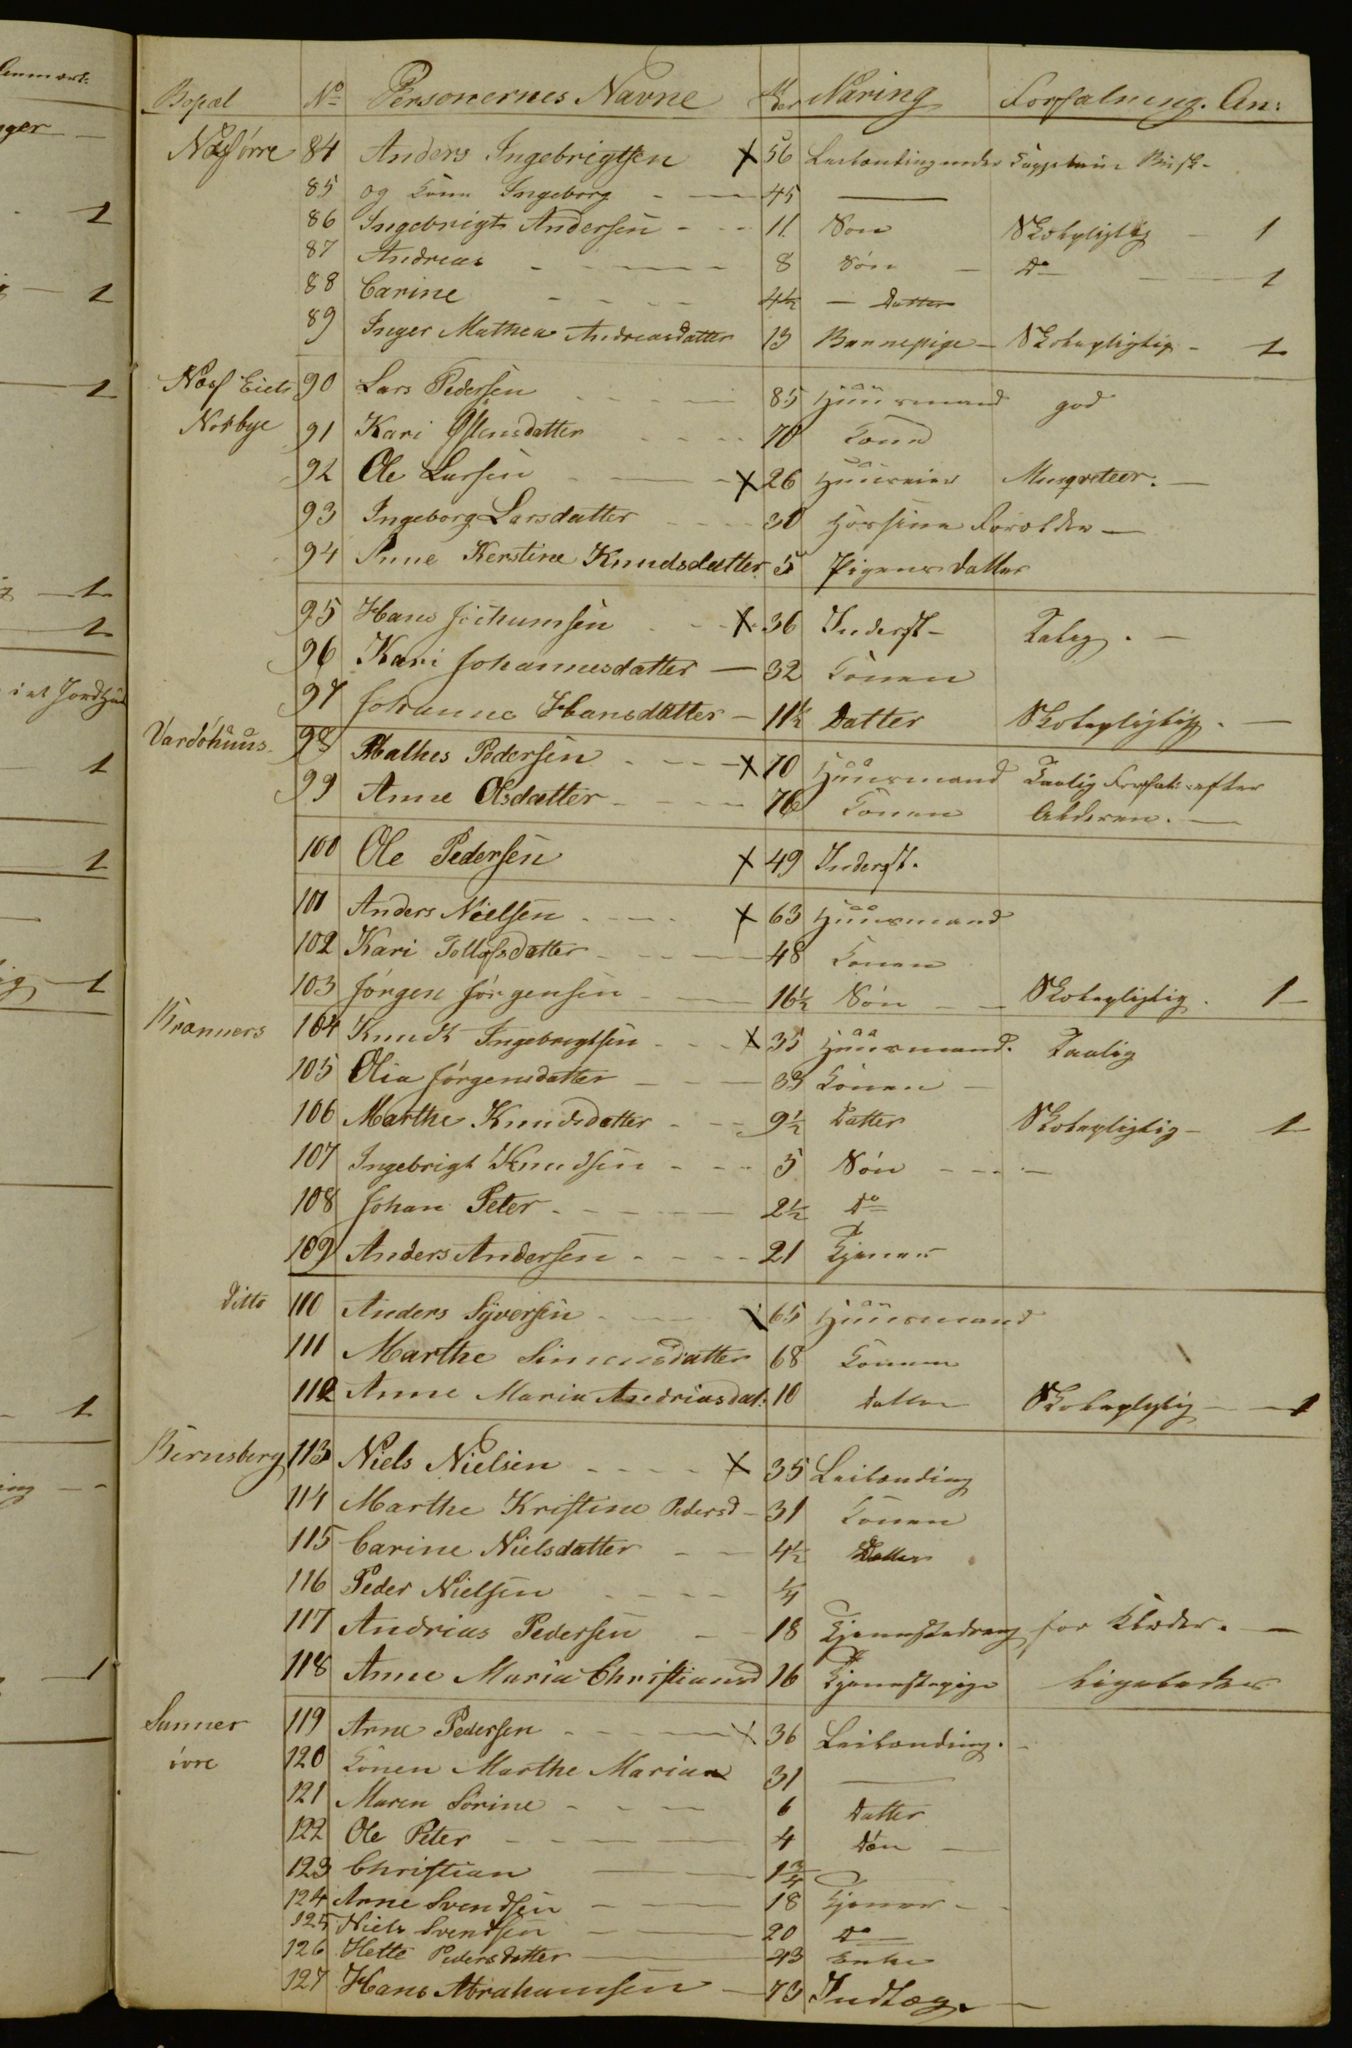 Bopæl No Personernes Navne Aar Næring Forfatning. An:
Næsørre 84 Anders Ingebrigtsen x 56 Leilænding under
85 og Kone Ingeborg 45
86 Ingebrigt Andersen 11 Søn Skolepligtig 1
87 Andreas 8 Søn Do 1
88 Carine 4½ Datter
89 Inger Mathea Andreasdatter 13 Barnepige Skolepligtig 1
Næss Eiet 90 Lars Pedersen 85 Huusmand god
Norbye 91 Kari Østensdatter 70 Kone
92 Ole Larsen x 26 Musqveteer.
93 Ingeborg Larsdatter 30 Hos sine Forældre
94 Anne Kerstine Knudsdatter 5 Pigens datter
95 Hans Jochumsen x 36 Inderst Taalig.
96 Kari Johannesdatter 32 Konen
97 Johanne Hansdatter 11½ Datter Skolepligtig.
Vardøhuus 98 Mathes Pedersen x 70 Huusmand Taalig Forfat: efter
99 Anne Olsdatter 76 Konen Alderen.
100 Ole Pedersen x 49 Inderst.
101 Anders Nielsen x 63 Huusmand
102 Kari Tollefsdatter 48 Konen
103 Jørgen Jørgensen 16½ Søn Skolepligtig. 1
Kranners 104 Knudt Ingebrigtsen x 35 Huusmand. Taalig
105 Olia Jørgensdatter 33 Konen
106 Marthe Knudsdatter 9½ Datter Skolepligtig 1
107 Ingebrigt Knudsen 5 Søn
108 Johan Peter 2½ Do
109 Anders Andersen 21 Tjener
ditto 110 Anders Syversen 65 Huusmand
111 Marthe Simensdatter 68 Konen
112 Anne Maria Andriasdat: 10 datter Skolepligtig 1
Bernsberg 113 Niels Nielsen x 35 Leilænding
114 Marthe Kristine Pedersd 31 Konen
115 Carine Nielsdatter 4½ Datter
116 Peder Nielsen ¼
117 Andrias Pedersen 18 Tjenestedreng for Klæder.
118 Anne Maria Christiansd 16 Tjenestepige ligeledes
Sunner 119 Arne Pedersen x 36 Leilænding.
øvre 120 Konen Marthe Maria 31
121 Maren Sørine 6 Datter
122 Ole Peter 4 Søn
123 Christian 1¾
124 Arne Svendsen 18 Tjener
125 Niels Svendsen 20 Do
126 Pedersdatter 43 Enke
127 Hans Abrahamsen 73 Indlæg.